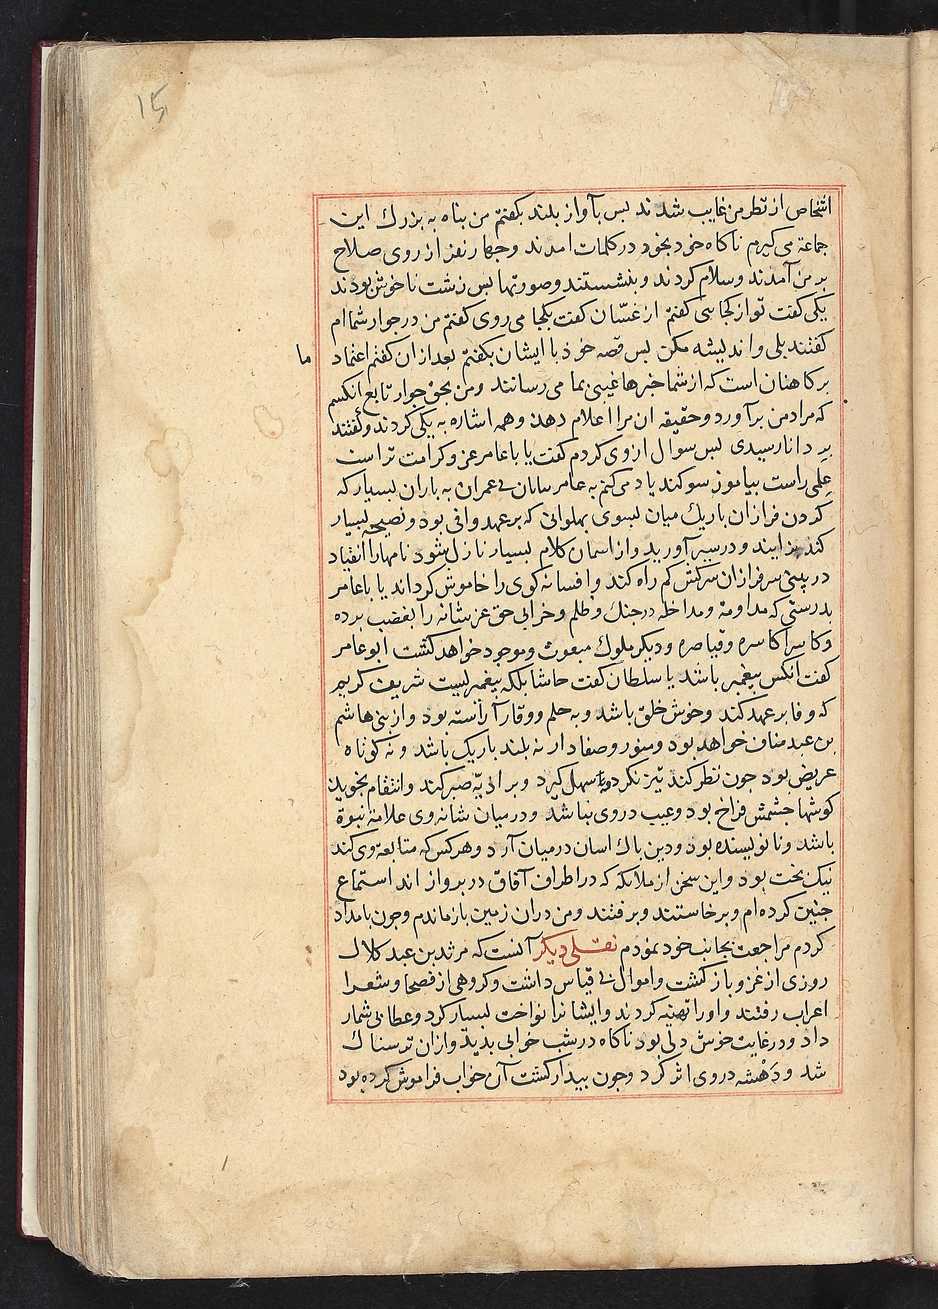 ۱۵
اشخاص از نظر من غایب شدند پس بآواز بلند بکفتم من پناه به بزرك این
جماعة می کیرم ناکاه خود بخود در کلمات امدند وچهار نفز از روی صلاح
بر من آمدند وسلام کردند و بنشستند وصورتها بس زشت ناخوش بودند
یکی کفت تواز کجاسی کفتم از غسّان کفت بکجا می روی کفتم من در جوار شماام
کفتند بلی واندیشه مکن پس قصه خوذ با ایشان بکفتم بعد ازان کفتم اعتماد
ما
بر کاهنان است که از شما خبرها غیبی بما می رسانند ومن بحق جوار تابع انکسم
که مراد من برآورد وحقیقه ان مرا اعلام دهد وهمه اشاره به یکی کردند وکفتند
بر دانا رسیدی پس سوال ازوی کردم کفت یا باعامر عز و کرامت تراست
علمی راست بیاموز سوکند یاد می کنم به عامر بی عمران به باران بسیار که
کردن فرازان باریك میان بسوی پهلوانی که بر عهد وافی بود ونصیحه بسیار
کند وازاسمان کلام بسیار نازل شود انقیاد
در پی سرفرازان سرکش کم راه کند وافسانه کوی را خاموش کرداند یا باعامر
بدرستی که مداومة ومداخله در جنك وظلم وخرابی حق را بغضب برده
وکاسرا کاسره وقیاصره ودیکر ملوك مبعوث وموجود خواهد کشت ابوعامر
کفت انکس پیغمبر باشد یا سلطان کفت حاشا بلکه پیغمبریست شریف کریم
که وفا بر عهد کند وخوش خلق باشد وبه حلم ووقار آراسته بود واز بنی هاشم
بن عبد مناف خواهد بود ومنور وصفادار نه بلند باریك باشد ونه کوتاه
عریض بود چون نظر کند تیز نکرد وسهل کیرد و بر اذیّه صبر کند وانتقام نجوید
کوشها چشمش فراخ بود وعیب دروی نباشد ودر میان شانه وی علامة نبوة
باشد ونانویسنده بود ودین پاك اسان درمیان آرد وهر کس که متابعه وی کند
نیك بخت بود واین سخن از ملائکه که در اطراف آفاق در پرواز اند استماع
چنین کرده ام وبرخاستند وبرفتند ومن دران زمین باز ماندم وچون بامداد
کردم مراجعت بجانب خود نمودم نقلی دیکر آنست که مرثد بن عبد کلال
روزی از غزو باز کشت واموال بی قیاس داشت وکروهی از فصحا وشعرا
اعراب رفتند واورا تهنیه کردند وایشانرا نواخت بسیار کرد وعطا بی شمار
داد ودر غایت خوش دلی بود ناکاه در شب خوابی بدید وازان ترسناك
شد ودَهْشه دروی اثر کرد وچون بیدار کشت آن خواب فراموش کرده بود